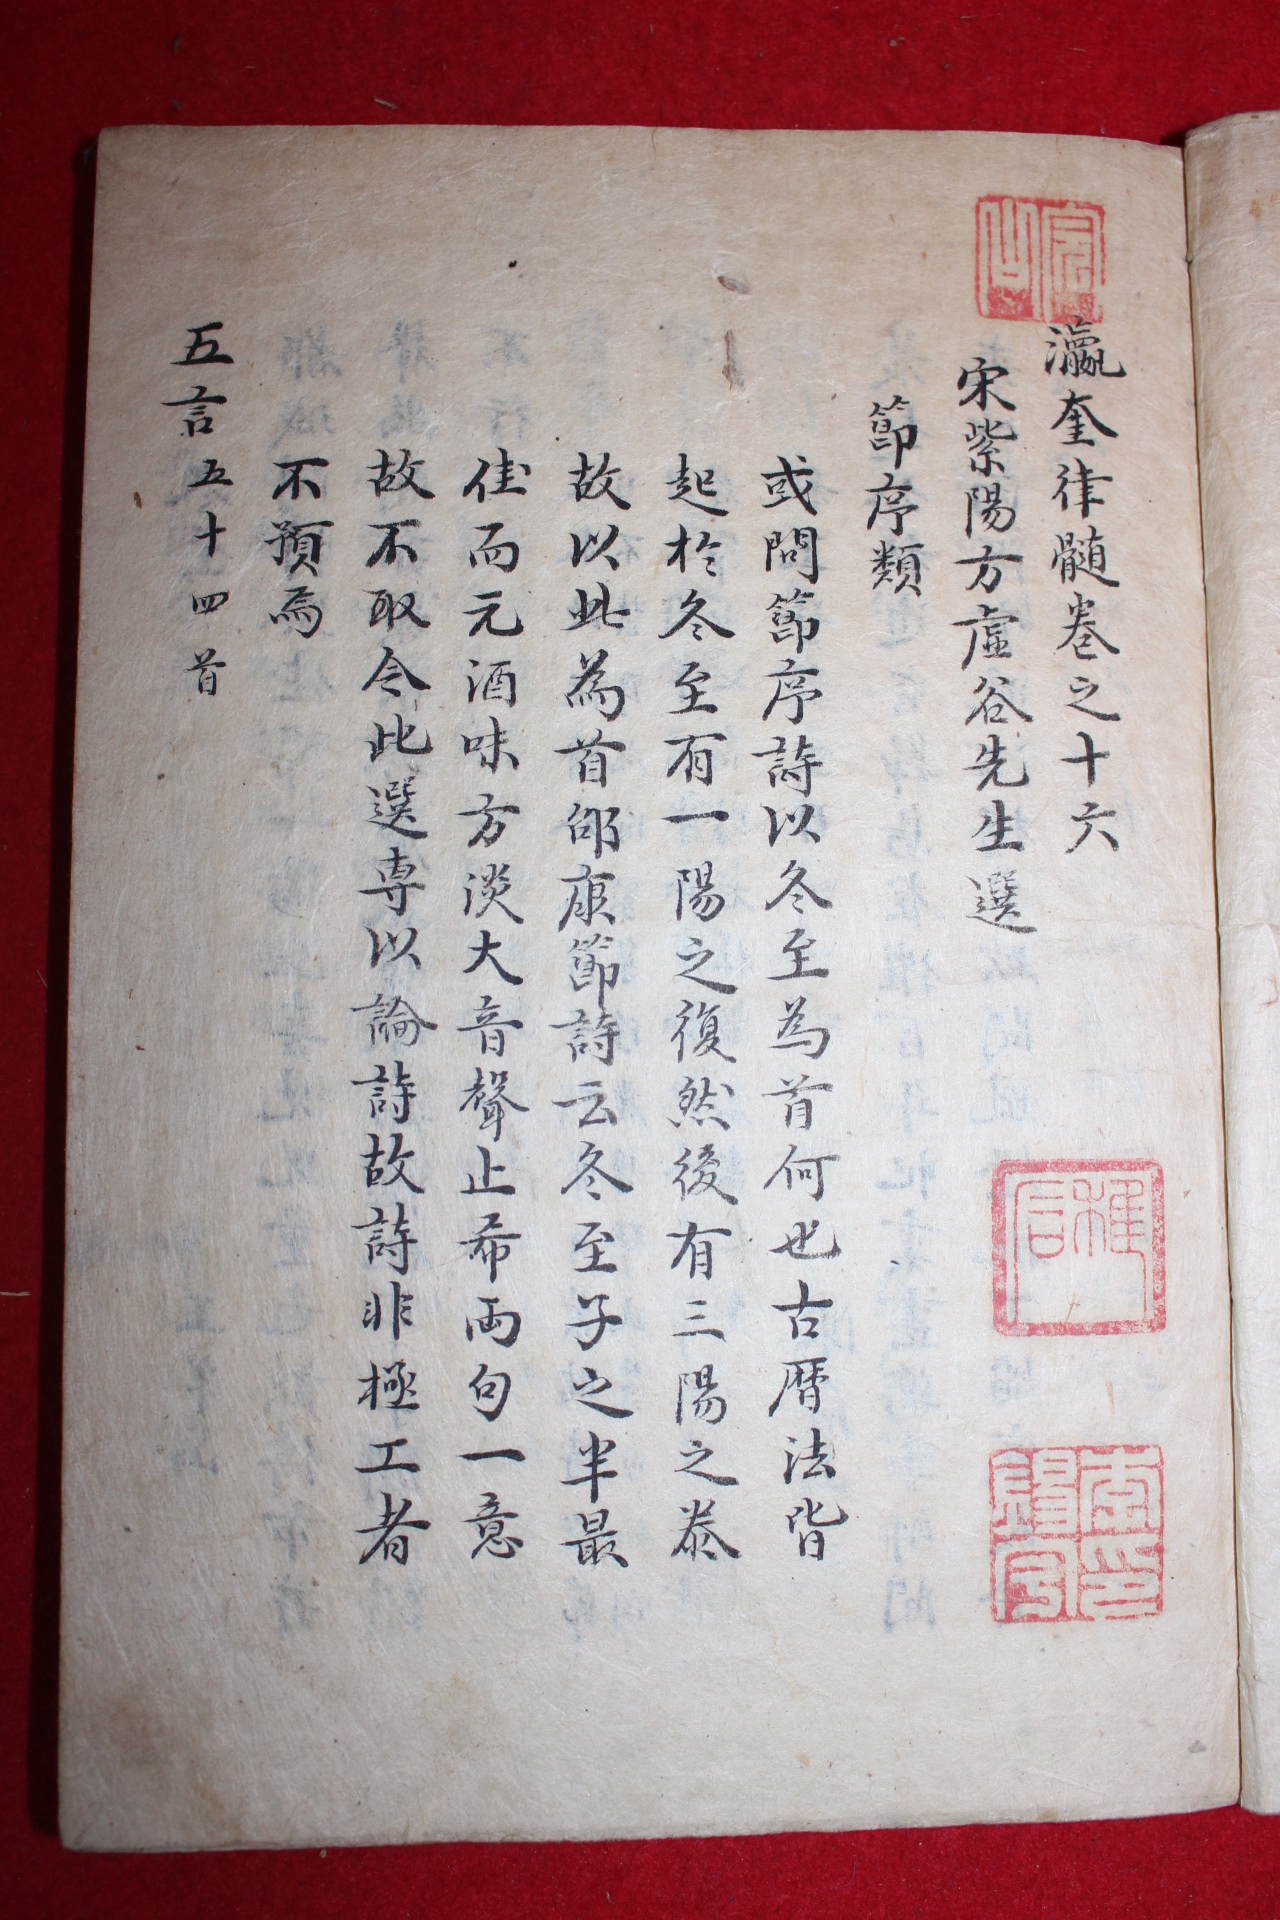 瀛奎律髓卷之十六
宋紫陽方虛谷先生選
節序類
或問節序詩以冬至為首何也古曆法皆
起於冬至有一陽之復然後有三陽之泰
故以此為首邵康節詩云冬至子之半最
佳而元酒味方淡大音聲止希两句一意
故不取今此選專以論詩故詩非極工者
不預焉
五言五十四首